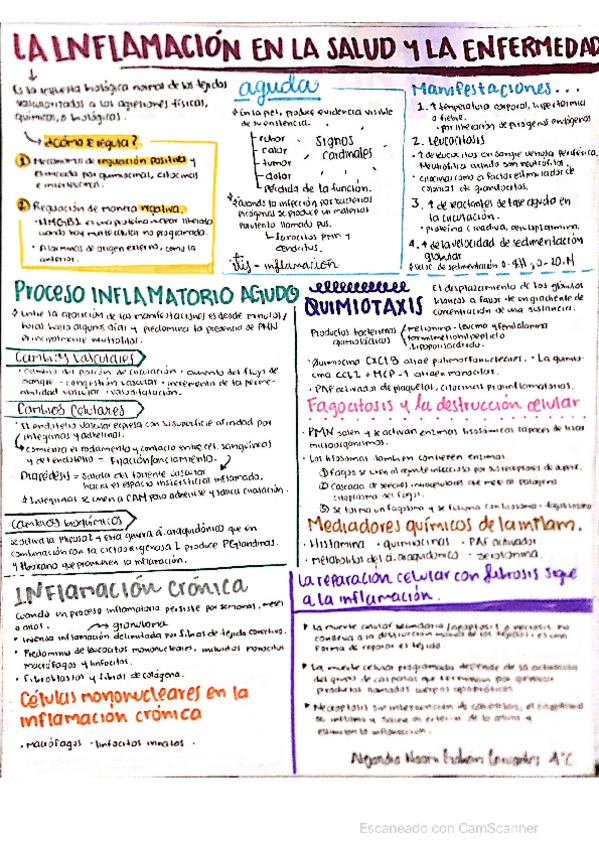 LA INFLAMACIÓN EN LA SALUD Y LA ENFERMEDAD
Es la respuesta biológica normal de los tejidos
vascularizados a las agresiones físicas,
químicas, o biológicas.
¿Cómo se regula?
① Mecanismos de regulación positiva y
mediada por quimiocinas, citocinas
e interleucinas.
② Regulación de manera negativa.
HMGB1 es una proteína nuclear liberada
cuando hay muerte celular no programada.
de origen externo, como la
anterior.
aguda
En la piel, produce evidencia visible
de su existencia.
rubor
calor
tumor
dolor
pérdida de la función.
Signos
cardinales
Cuando la infección por bacterias
piógenas se produce un material
purulento llamado pus.
PMN y
itis - inflamación
Manifestaciones...
1. ↑ temperatura corporal, hipertermia
o fiebre.
por liberación de pirógenos endógenos
2. Leucocitosis
↑ de leucocitos en sangre venosa periférica.
Neutrofilia cuando son neutrófilos.
citocinas como factores estimuladores de
colonias de granulocitos.
3. ↑ de reactantes de fase aguda en
la circulación.
proteína C reactiva, ceruloplasmina.
4. ↑ de la velocidad de sedimentación
globular
PROCESO INFLAMATORIO AGUDO
Entre la aparición de las manifestaciones es desde minutos/
horas hasta algunos días y predomina la presencia de PMN
principalmente neutrófilos.
Cambios vasculares
cambio del patrón de circulación · aumento del flujo de
sangre · congestión vascular · incremento de la perme-
abilidad vascular · vasodilatación.
Cambios Celulares
El endotelio vascular expresa en su superficie afinidad por
integrinas y
comienza el rodamiento y contacto entre cél. sanguíneas
y del endotelio = Fijación/anclamiento.
Diapédesis = salida del torrente vascular
hacia el espacio intersticial inflamado.
Integrinas se unen a CAM para adherirse y salir a circulación.
Cambios bioquímicos
Se activa la PhosA2 y esta genera á. araquidónico que en
combinación con la ciclooxigenasa 1 produce PGlandinas
y tromboxano que promueven la inflamación.
QUIMIOTAXIS
El desplazamiento de los glóbulos
blancos a favor de un gradiente de
concentración de una sustancia.
Productos bacterianos
quimiotácticos
metionina - leucina y fenilalanina
formilmetionil péptido
lipopolisacárido.
Quimiocina CXCL8 atrae polimorfonucleares. · La quimio-
cina CCL2 o MCP-1 atraen monocitos.
PAF activador de plaquetas, citocinas proinflamatorias.
Fagocitosis y la destrucción celular
PMN salen y se activan enzimas lisosómicas capaces de lisar
microorganismos.
Los lisosomas también contienen enzimas.
① Fagos se unen al agente infeccioso por sus receptores de superf.
② Cascada de señales intracelulares que mete al patógeno
citoplasma del fago.
③ Se forma un fagosoma y se fusiona con lisosoma - fagolisosoma
Mediadores químicos de la inflam.
Histamina · quimiocinas · PAF activador.
Metabolitos del á. araquidónico · serotonina.
INFLAMACIÓN CRÓNICA
Cuando un proceso inflamatorio persiste por semanas, meses
o años. granuloma
Intensa inflamación delimitada por fibras de tejido conectivo.
Predominio de leucocitos mononucleares, incluidos monocitos
macrófagos y linfocitos.
Fibroblastos y fibras de colágena.
Células mononucleares en la
inflamación crónica
Macrófagos · linfocitos innatos.
La reparación celular con fibrosis sigue
a la inflamación.
La muerte celular secundaria (apoptosis) o necrosis no
conlleva a la destrucción masiva de los tejidos, es una
forma de reparar el tejido
La muerte celular programada depende de la activación
del grupo de caspasas que terminan por generar
productos llamados cuerpos apoptóticos
Necroptosis sin intervención de caspasas, el citoplasma
se inflama y salida al exterior de la célula y
estimulan la inflamación.
4°C
Escaneado con CamScanner